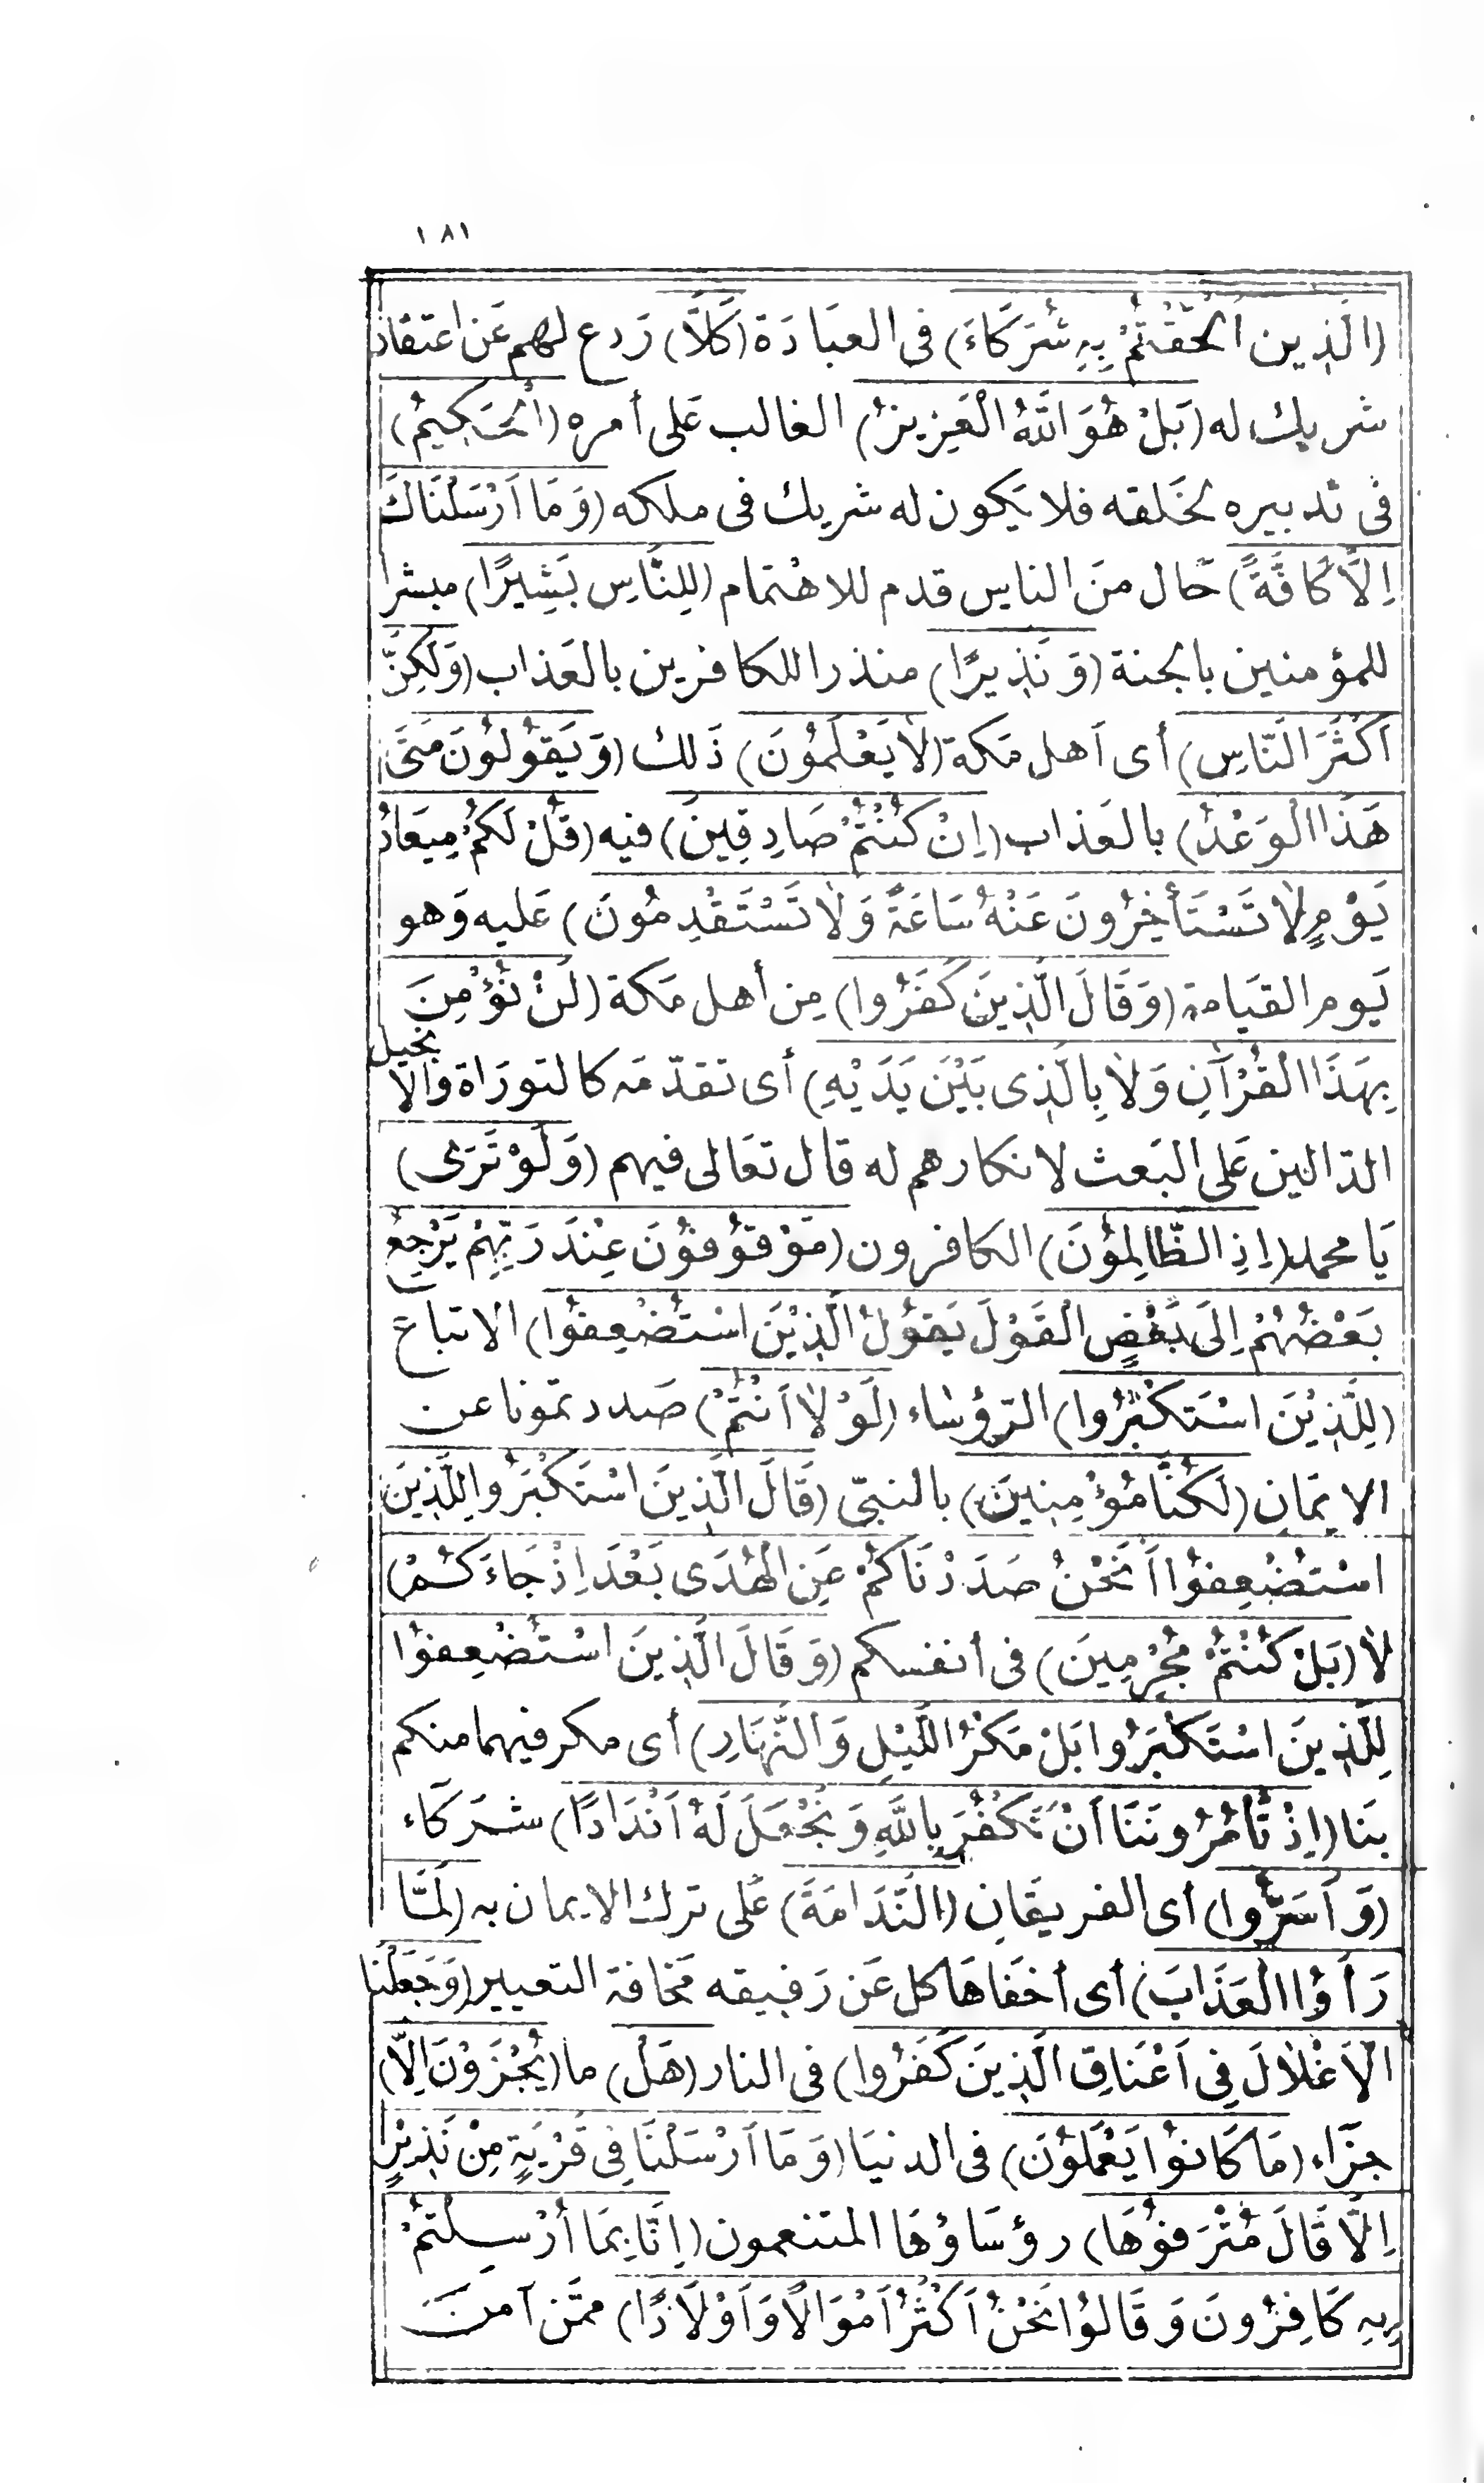 ١٨١
(الَّذِين أَلْحَقْتُمْ بِهِ شُرَكَاءَ) فى العبَادَة (كَلَّا) رَدع لهم عَن اعتقاد
شريك له (بَلْ هُوَ اللَّهُ الْعَزِيزُ) الغالب عَلى أمره (الْحَكِيمُ)
فى تدبيره لخَلقه فلا يَكون له شريك فى ملكه (وَمَا اَرْسَلْنَاكَ
اِلَّا كَافَّةً) حَال منَ الناس قدم للاهْتمام (لِلنَّاسِ بَشِيرًا) مبشرا
للمؤمنين بالجنة (وَنَذِيرًا) منذرا للكافرين بالعَذاب (وَلَكِنَّ
اَكْثَرَ النَّاسِ) أى اَهل مَكة (لَا يَعْلَمُونَ) ذَلك (وَيَقُولُونَ مَتَى
هَذَا الْوَعْدُ) بالعَذاب (اِنْ كُنْتُمْ صَادِقِينَ) فيه (قُلْ لَكُمْ مِيعَادُ
يَوْمٍ لَا تَسْتَأْخِرُونَ عَنْهُ سَاعَةً وَلَا تَسْتَقْدِمُونَ) عَليه وَهو
يَوم القيَامة (وَقَالَ الَّذِينَ كَفَرُوا) مِن أهل مَكة (لَنْ نُؤْمِنَ
بِهَذَا الْقُرْآنِ وَلَا بِالَّذِى بَيْنَ يَدَيْهِ) أى تقدّمَه كالتورَاة والانجيل
الدّالين عَلى البَعث لانكارهم له قال تعَالى فيهم (وَلَوْ تَرَى)
يَا محمد (اِذِ الظَّالِمُونَ) الكافرون (مَوْقُوفُونَ عِنْدَ رَبِّهِمْ يَرْجِعُ
بَعْضُهُمْ اِلَى بَعْضٍ الْقَوْلَ يَقُولُ الَّذِيْنَ اسْتُضْعِفُوا) الاتباع
(لِلَّذِيْنَ اسْتَكْبَرُوا) الرّؤسَاء (لَوْلَا اَنْتُمْ) صَددتمونا عن
الايمَان (لَكُنَّا مُؤْمِنِينَ) بالنبىّ (قَالَ الَّذِينَ اسْتَكْبَرُوا لِلَّذِينَ
اسْتُضْعِفُوا اَنَحْنُ صَدَدْنَاكُمْ عَنِ الْهُدَى بَعْدَ اِذْ جَاءَكُمْ)
لَا (بَلْ كُنْتُمْ مُجْرِمِينَ) فى أنفسكم (وَقَالَ الَّذِينَ اسْتُضْعِفُوا
لِلَّذِينَ اسْتَكْبَرُوا بَلْ مَكْرُ اللَّيْلِ وَالنَّهَارِ) أى مكر فيهما منكم
بنَا (اِذْ تَأْمُرُونَنَا اَنْ نَكْفُرَ بِاللَّهِ وَنَجْعَلَ لَهُ اَنْدَادًا) شرَكَاء
(وَاَسَرُّوا) أى الفريقَان (النَّدَامَةَ) عَلى ترك الايمان به (لَمَّا
رَأَوُا الْعَذَابَ) أى أخفَاهَا كل عَن رَفيقه مخَافة التعيير (وَجَعَلْنَا
الْاَغْلَالَ فِى اَعْنَاقِ الَّذِينَ كَفَرُوا) فى النار (هَلْ) ما (يُجْزَوْنَ اِلَّا)
جزَاء (مَا كَانُوا يَعْمَلُونَ) فى الدنيَا (وَمَا اَرْسَلْنَا فِى قَرْيَةٍ مِنْ نَذِيْرٍ
اِلَّا قَالَ مُتْرَفُوهَا) رؤسَاؤهَا المتنعمون (اِنَّا بِمَا أُرْسِلْتُمْ
بِهِ كَافِرُونَ وَقَالُوا نَحْنُ اَكْثَرُ اَمْوَالًا وَاَوْلَادًا) ممَّن آمنَ